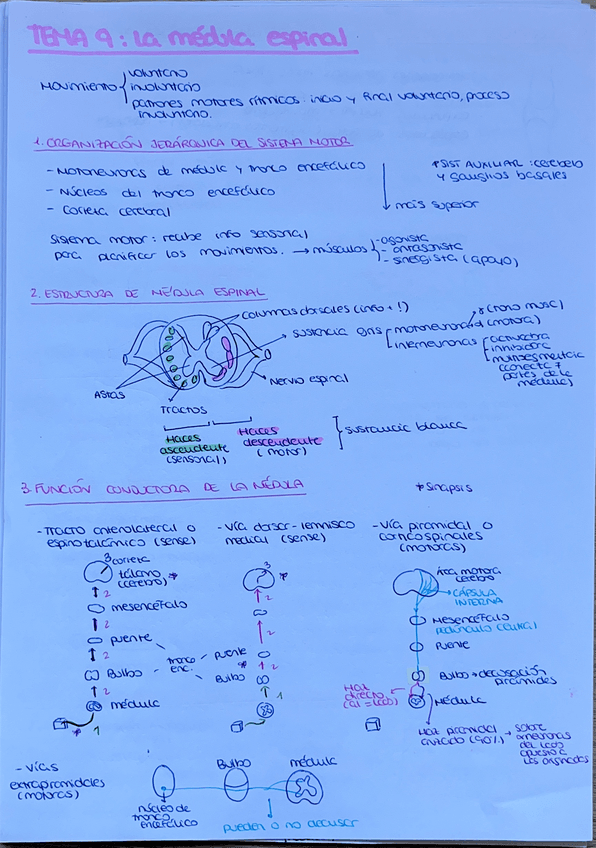 TEMA 9: La médula espinal
Movimiento { voluntario
involuntario
patrones motores rítmicos: inicio y final voluntario, proceso
involuntario.
1. ORGANIZACIÓN JERÁRQUICA DEL SISTEMA MOTOR
- Motoneuronas de médula y tronco encefálico
- Núcleos del tronco encefálico
- Corteza cerebral
*SIST AUXILIAR: cerebelo
y ganglios basales
↓ más superior
Sistema motor: recibe info sensorial
para planificar los movimientos. → músculos { - agonista
- antagonista
- sinergista (apoyo)
2. ESTRUCTURA DE MÉDULA ESPINAL
columnas dorsales (info + !)
sustancia gris { motoneuronas (motora)
γ (tono musc)
α
interneuronas { activadora
inhibidora
(conecta ≠
partes de la
médula)
Nervio espinal
Astas
Tractos
Haces
ascendente
(sensorial)
Haces
descendente
(motor)
} sustancia blanca
3. FUNCIÓN CONDUCTORA DE LA MÉDULA
*Sinapsis
- Tracto anterolateral o
espinotalámico (sense)
3 corteza
tálamo *
(cerebro)
2
mesencéfalo
2
puente
2
Bulbo
2
médula
1
tronco
enc.
- Vía dorsal-lemnisco
medial (sense)
3
*
2
2
puente
* 2
Bulbo
1
- Vía piramidal o
corticospinales
(motoras)
Área motora
cerebro
CÁPSULA
INTERNA
Mesencéfalo
Puente
Bulbo → decusación
pirámides
Haz
directo
Médula
Haz piramidal
cruzado (90%) → sobre
- Vías
extrapiramidales
(motoras)
núcleo de
tronco
encefálico
Bulbo
médula
pueden o no decusar